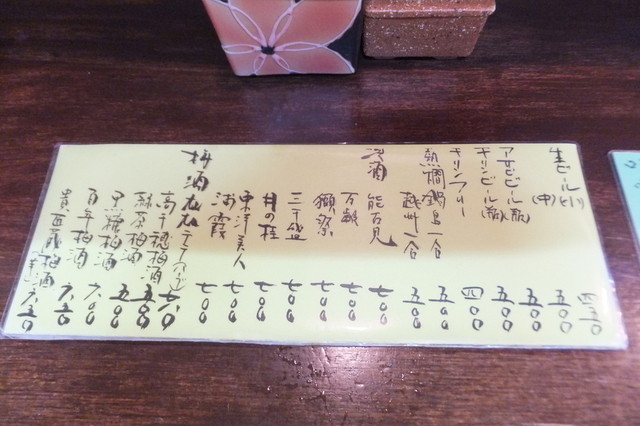 生ビール(小) 四五〇
(中) 五〇〇
アサヒビール(瓶) 五〇〇
キリンビール(瓶) 五〇〇
キリンフリー 四〇〇
熱燗 鍋島 一合 五五〇
越州 一合 五〇〇
冷酒 能古見 七〇〇
万齢 七〇〇
獺祭 七〇〇
三千盛 七〇〇
井の桂 七〇〇
東洋美人 七〇〇
浦霞 七〇〇
梅酒
高千穂梅酒 七六〇
緑茶梅酒 五五〇
黒糖梅酒 五〇〇
百年梅酒 六〇〇
貴匠蔵梅酒 六五〇
六五〇